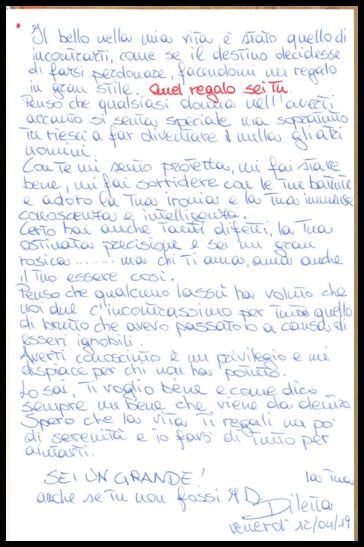 Il bello nella mia vita è stato quello di
incontrarti, come se il destino decidesse
di farsi perdonare, facendomi un regalo
in gran stile. Quel regalo sei tu
Penso che qualsiasi donna nell'averti
accanto si senta speciale ma soprattutto
tu riesci a far diventare il nulla gli altri
uomini.
Con te mi sento protetta, mi fai stare
bene, mi fai sorridere con le tue battute
e adoro la tua ironia e la tua immensa
conoscenza e intelligenza.
Certo hai anche tanti difetti, la tua
ostinata precisione e sei un gran
rosica........ ma chi ti ama, ama anche
il tuo essere così.
Penso che qualcuno lassù ha voluto che
noi due c'incontrassimo per tutto quello
di brutto che avevo passato a causa di
esseri ignobili.
Averti conosciuto è un privilegio e mi
dispiace per chi non ha potuto.
Lo sai, ti voglio bene e come dico
sempre un bene che viene da dentro
Spero che la vita ti regali un po'
di serenità e io farò di tutto per
aiutarti.
SEI UN GRANDE! la tua
anche se tu non fossi M D. Diletta
venerdì 12/04/19